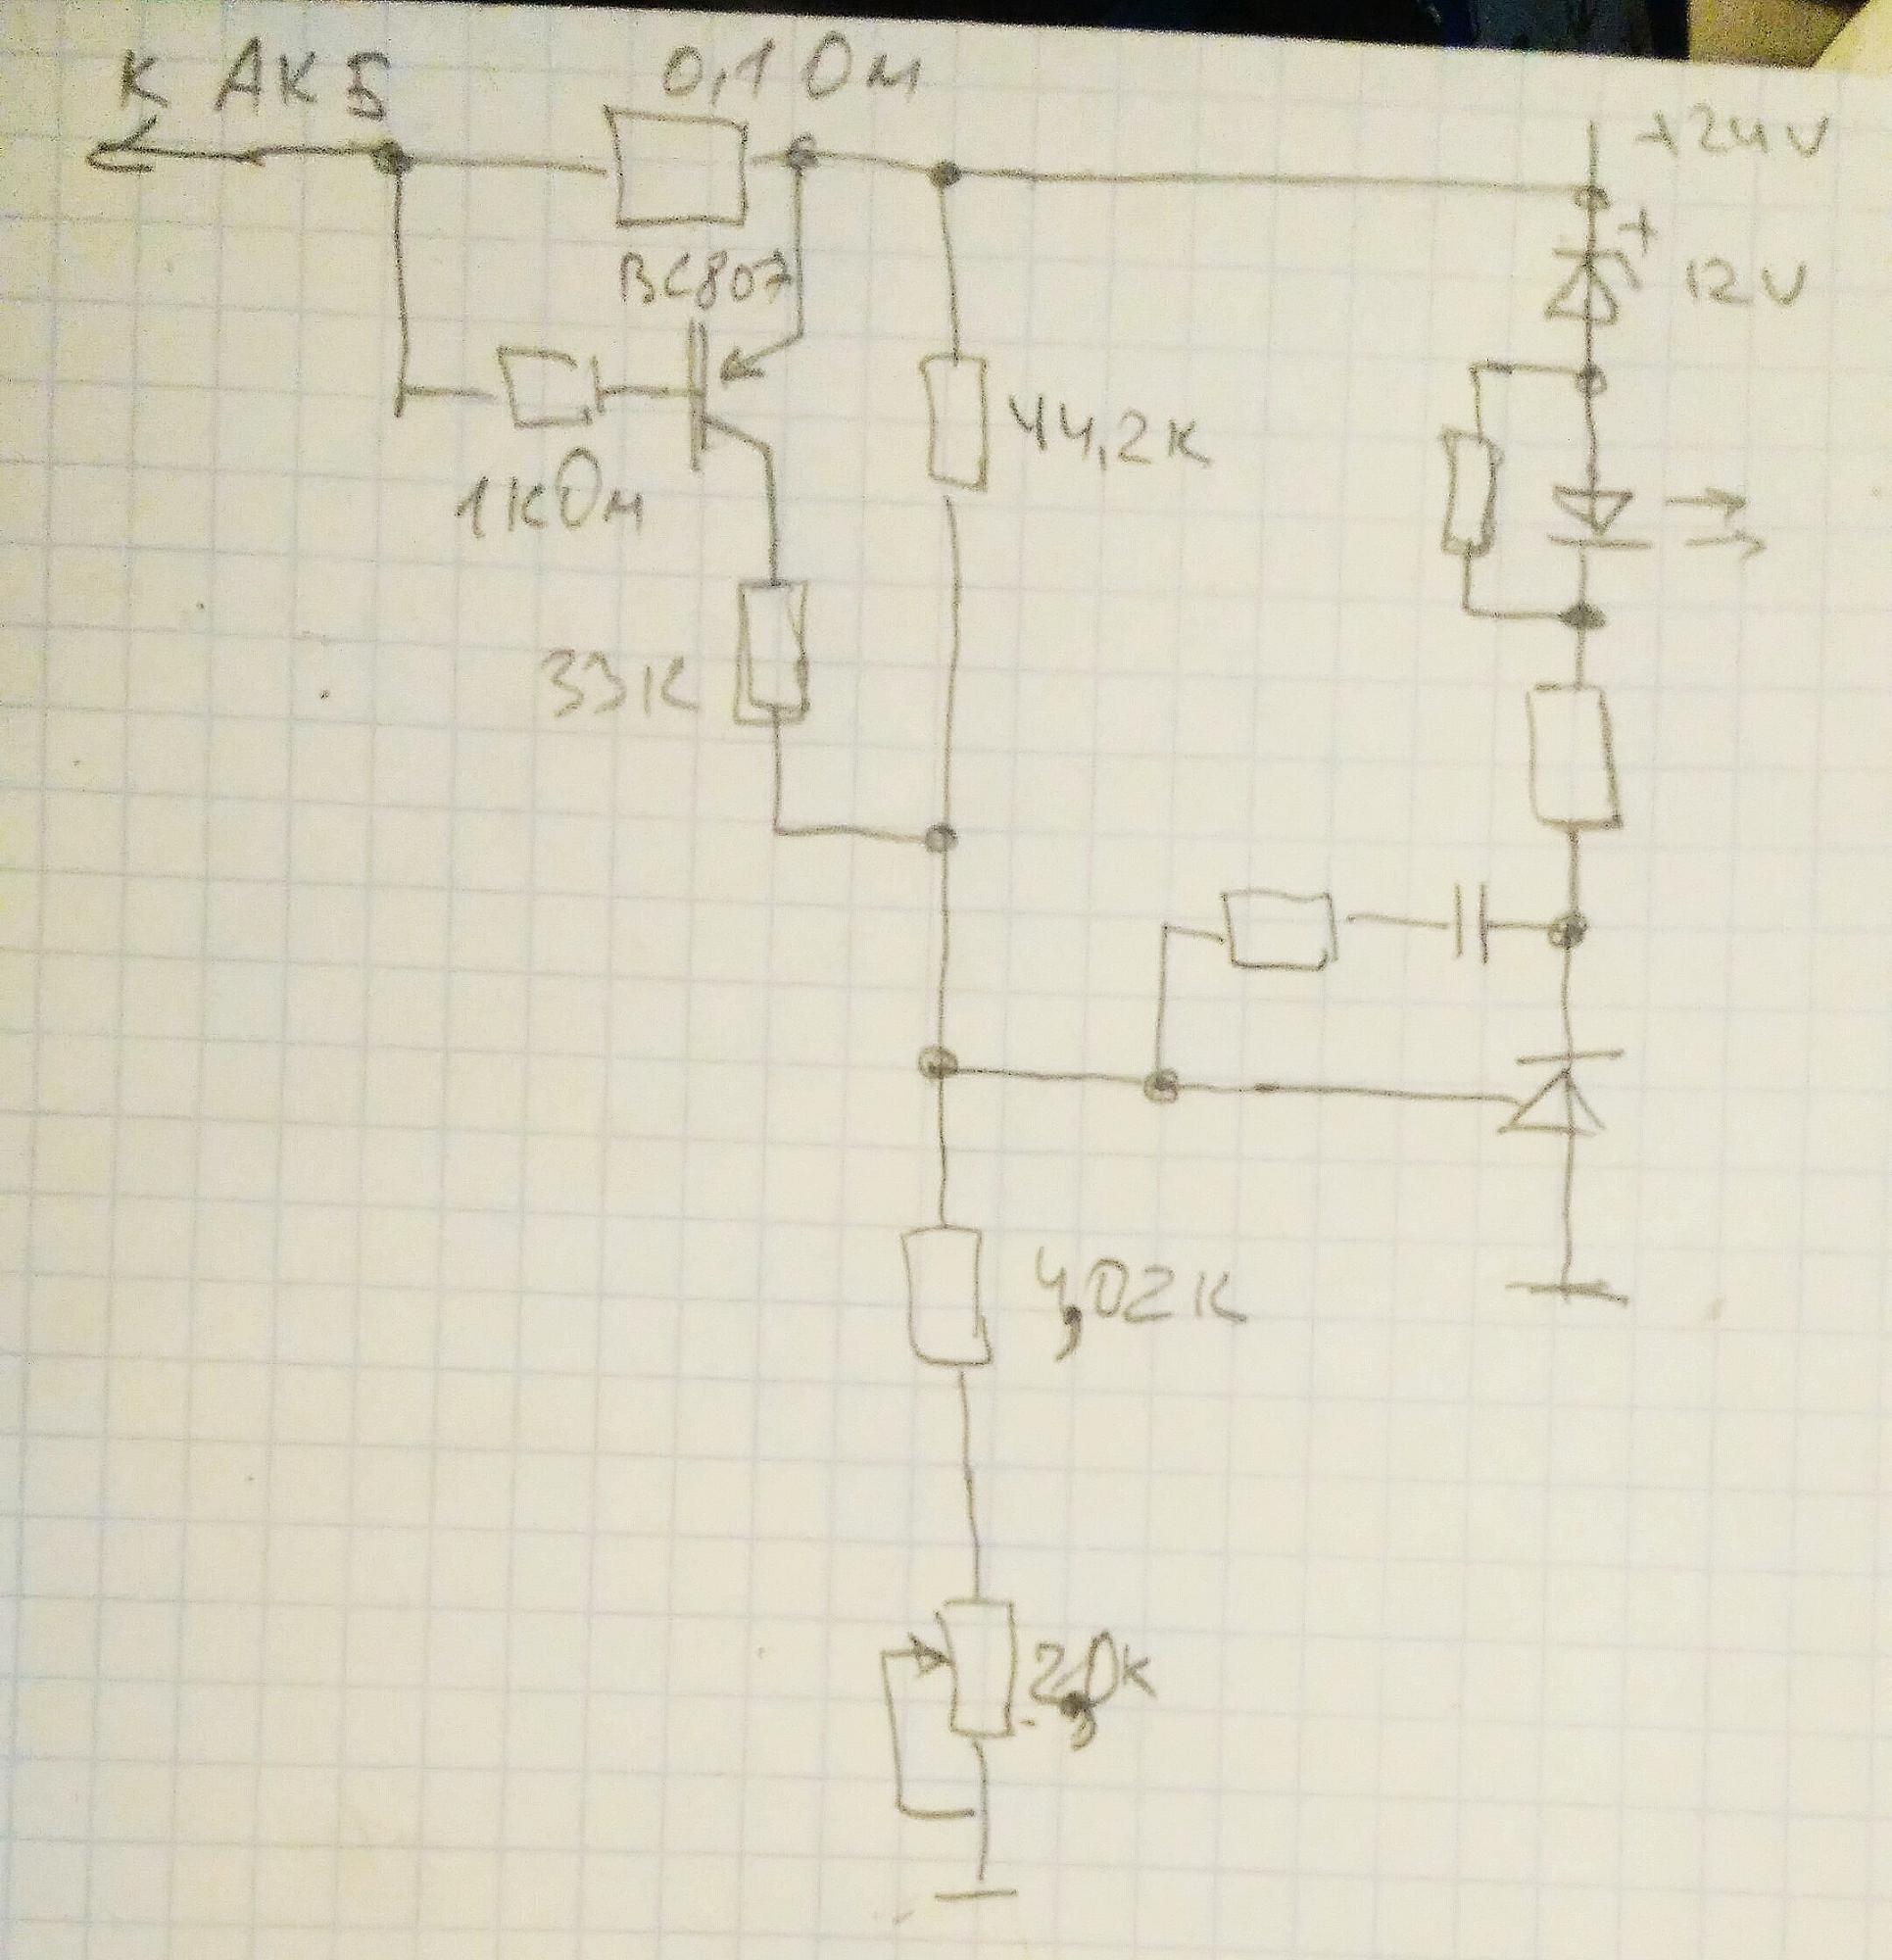 К АКБ
0,1 Ом
+24V
+
12V
BC807
44,2к
1кОм
33к
4,02к
2,0к